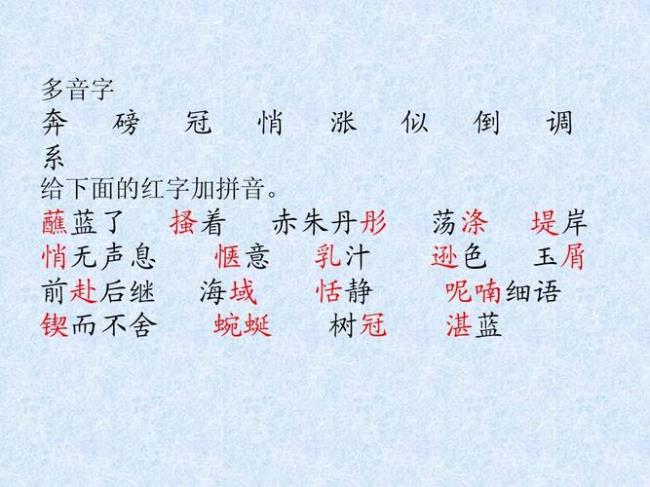 多音字
奔 磅 冠 悄 涨 似 倒 调
系
给下面的红字加拼音。
蘸蓝了 搔着 赤朱丹彤 荡涤 堤岸
悄无声息 惬意 乳汁 逊色 玉屑
前赴后继 海域 恬静 呢喃细语
锲而不舍 蜿蜒 树冠 湛蓝